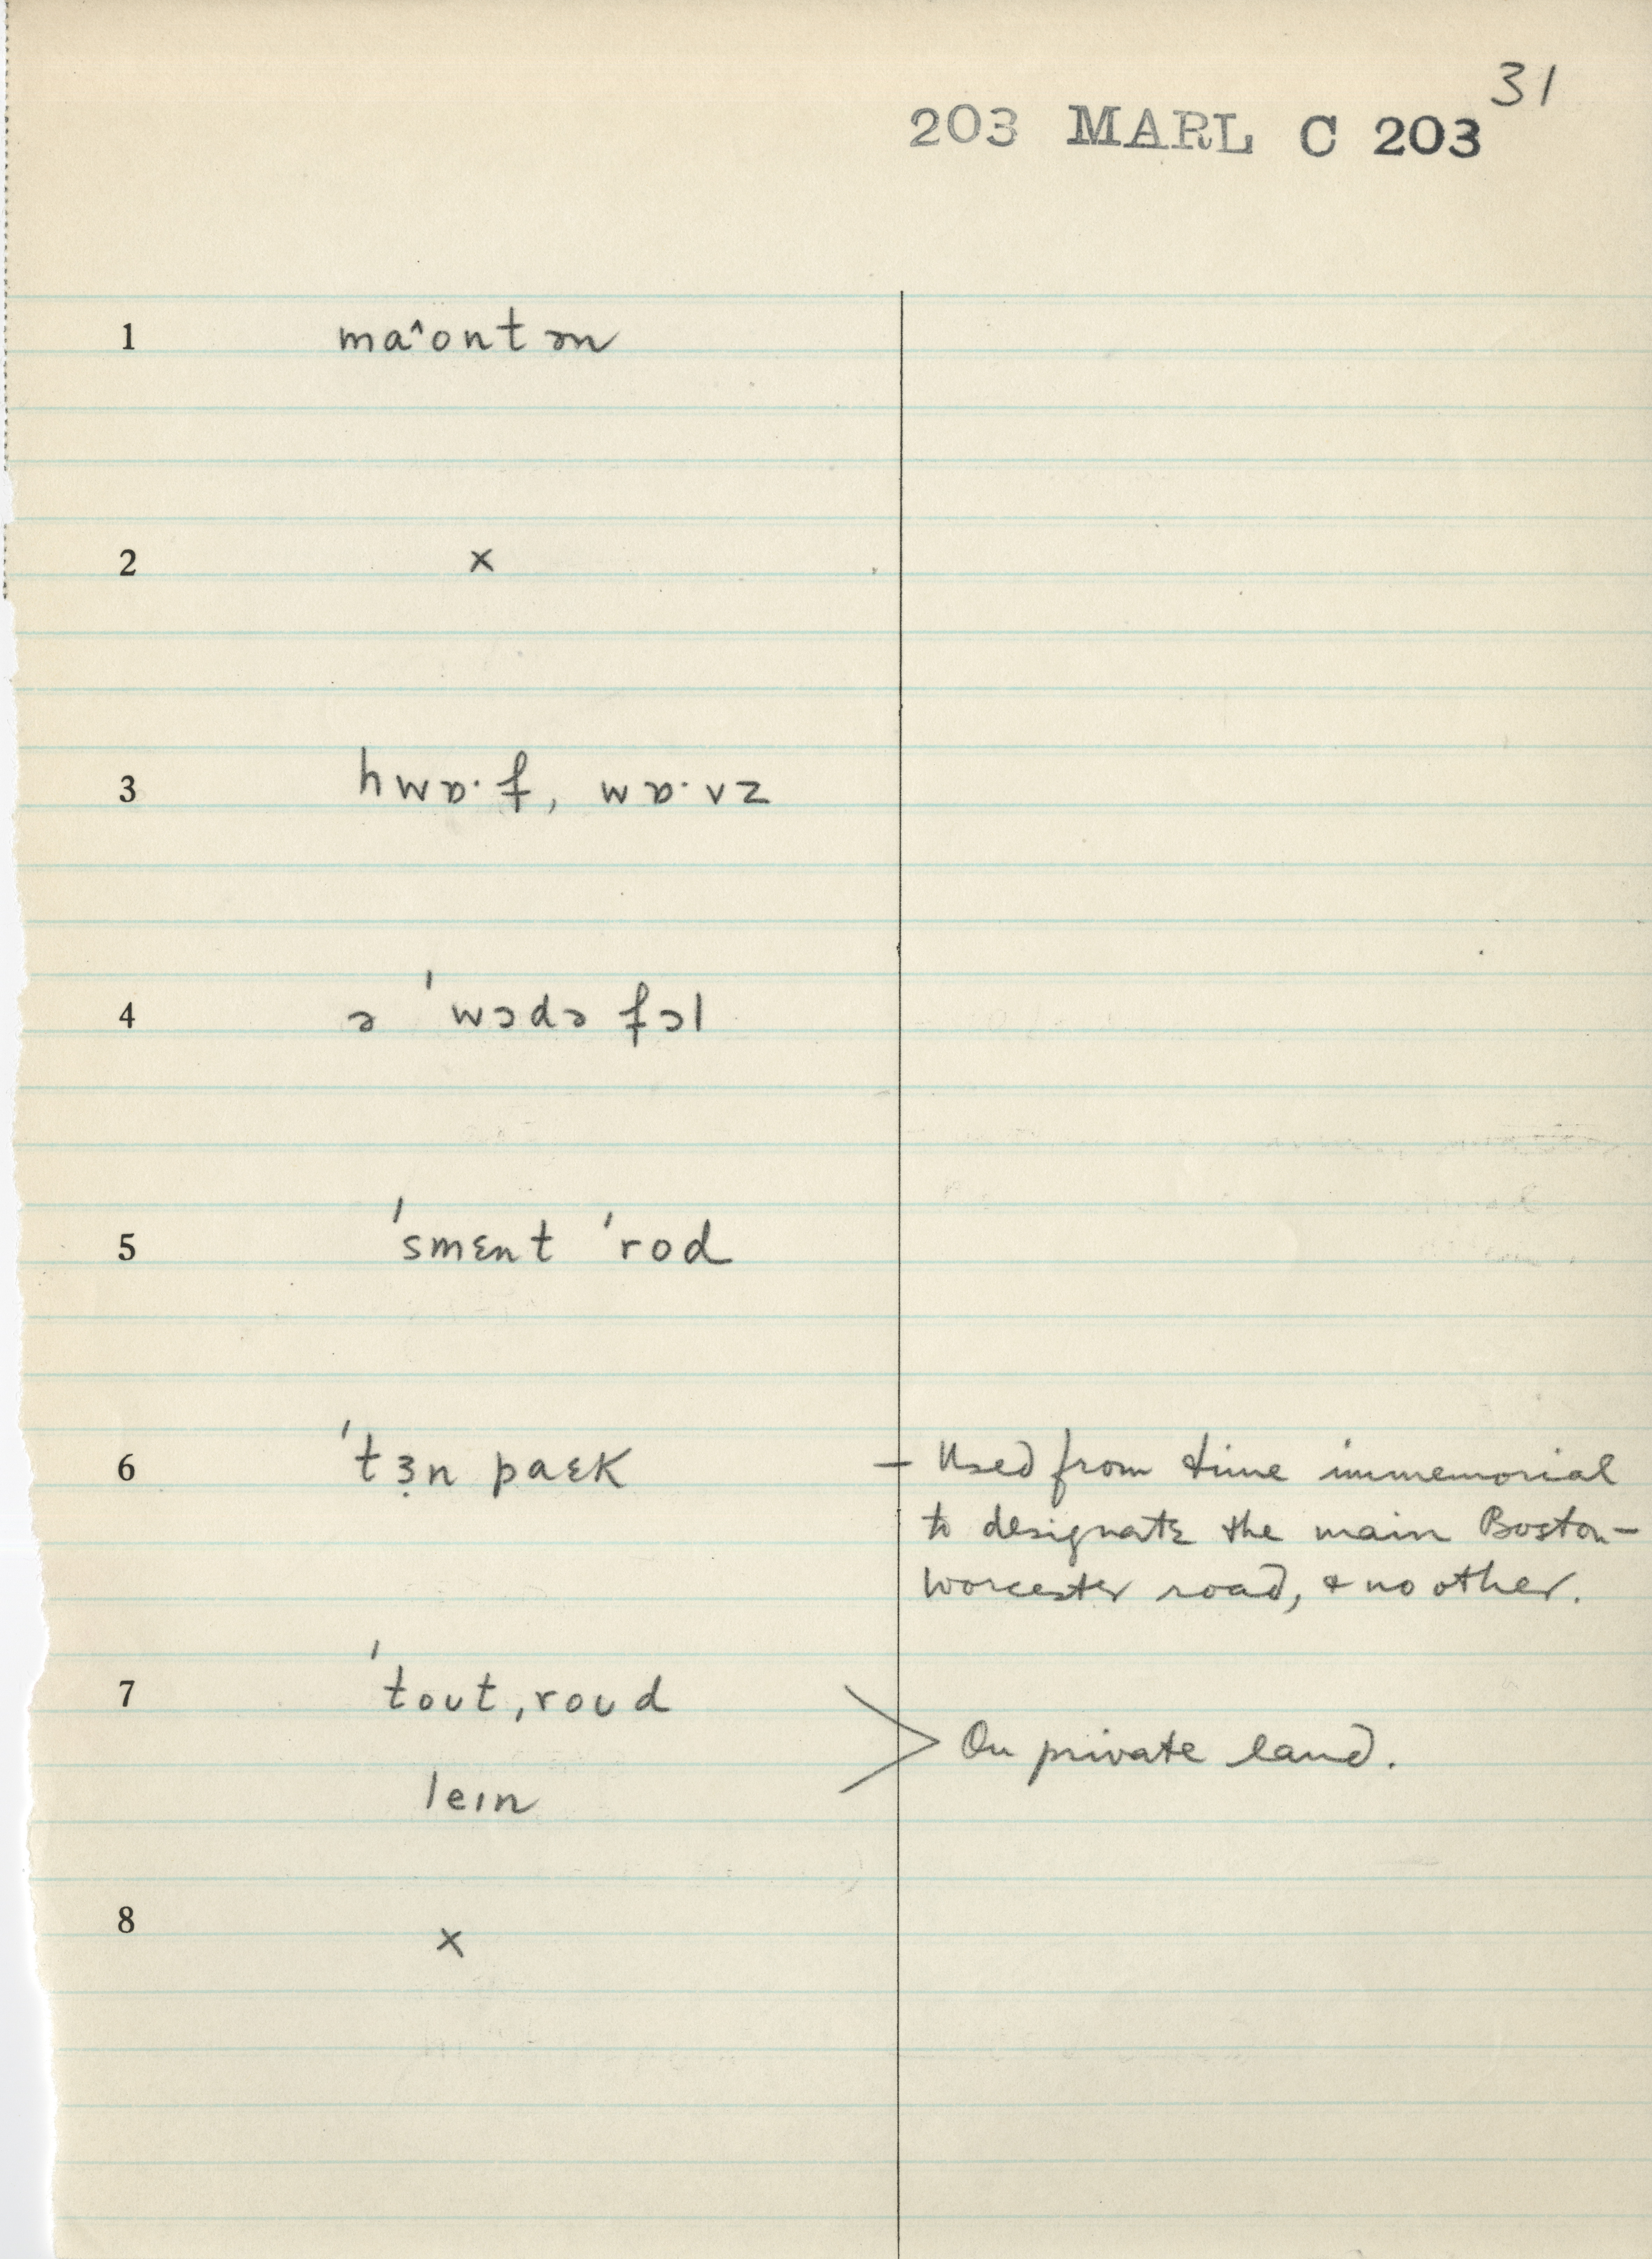 31
203 MARL C 203
1 maˆontən
2 x
3 hwɒ·f, wɒ·vz
4 ə 'wɔdə fɔl
5 'smɛnt 'rod
6 'tɜ̣n paɛk – Used from time immemorial
to designate the main Boston-
Worcester road, & no other.
7 'toʊt ˌroʊd
> On private land.
leɪn
8 x